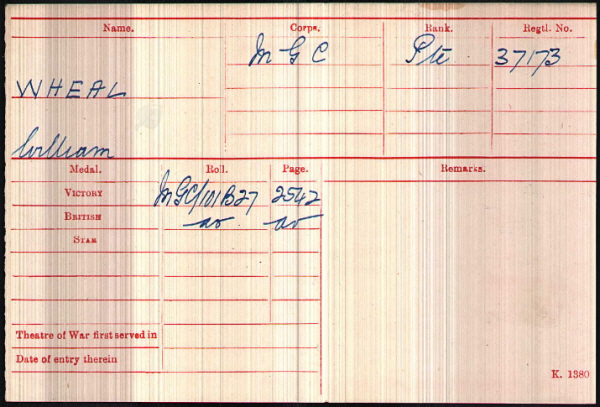 Name. Corps. Rank. Regtl. No.
M G C Pte 37173
WHEAL
William
Medal. Roll. Page. Remarks.
VICTORY MGC/101B27 2542
BRITISH do do
STAR
Theatre of War first served in
Date of entry therein
K. 1380